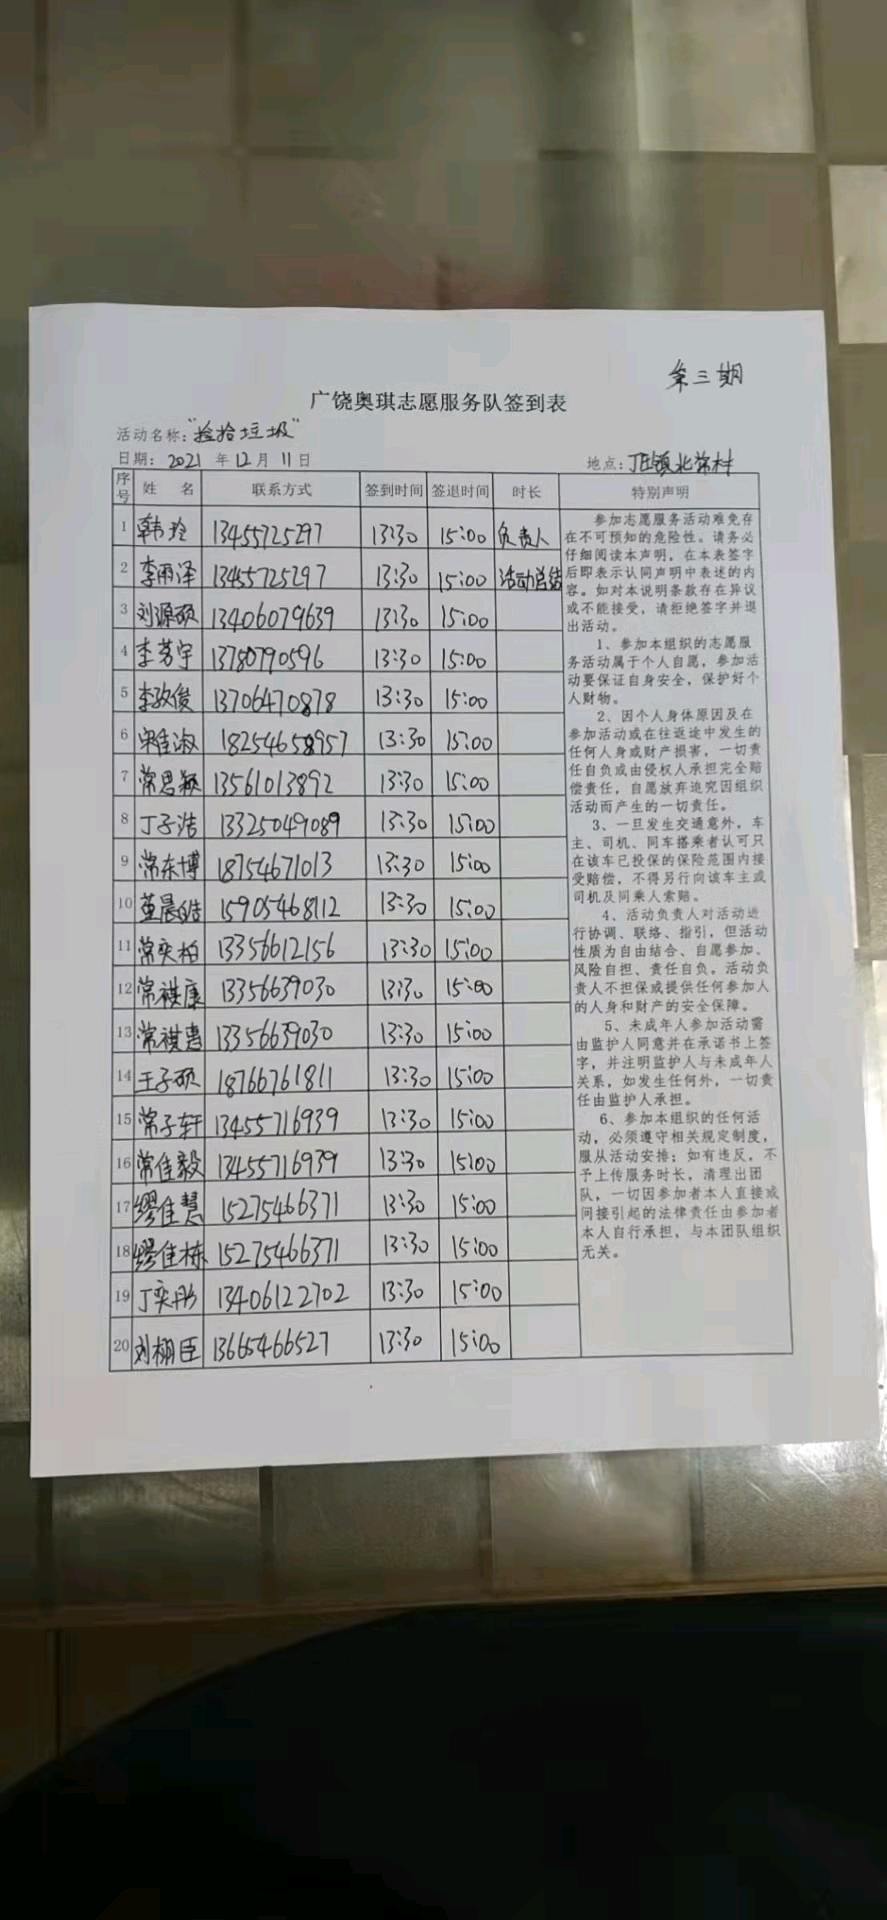 第三期
广饶奥琪志愿服务队签到表
活动名称："捡拾垃圾"
日期：2021 年 12 月 11 日 地点：丁庄镇北常村
序号 姓 名 联系方式 签到时间 签退时间 时长 特别声明
1 韩玲 13455725297 13:30 15:00 负责人
2 李雨泽 13455725297 13:30 15:00 活动总结
3 刘源硕 13406079639 13:30 15:00
4 李芳宇 13780790596 13:30 15:00
5 李孜俊 13706470878 13:30 15:00
6 宋佳淑 18254658957 13:30 15:00
7 常思颖 13561013892 13:30 15:00
8 丁子浩 13325049089 13:30 15:00
9 常东博 18754671013 13:30 15:00
10 董晨皓 15905468112 13:30 15:00
11 常奕柏 13356612156 13:30 15:00
12 常祺康 13356639030 13:30 15:00
13 常祺惠 13356639030 13:30 15:00
14 王子硕 18766761811 13:30 15:00
15 常子轩 13455716939 13:30 15:00
16 常佳毅 13455716939 13:30 15:00
17 缪佳慧 15275466371 13:30 15:00
18 缪佳栋 15275466371 13:30 15:00
19 丁奕彤 13406122702 13:30 15:00
20 刘栩臣 13665466527 13:30 15:00
参加志愿服务活动难免存
在不可预知的危险性。请务必
仔细阅读本声明，在本表签字
后即表示认同声明中表述的内
容。如对本说明条款存在异议
或不能接受，请拒绝签字并退
出活动。
1、参加本组织的志愿服
务活动属于个人自愿，参加活
动要保证自身安全，保护好个
人财物。
2、因个人身体原因及在
参加活动或在往返途中发生的
任何人身或财产损害，一切责
任自负或由侵权人承担完全赔
偿责任，自愿放弃追究因组织
活动而产生的一切责任。
3、一旦发生交通意外，车
主、司机、同车搭乘者认可只
在该车已投保的保险范围内接
受赔偿，不得另行向该车主或
司机及同乘人索赔。
4、活动负责人对活动进
行协调、联络、指引，但活动
性质为自由结合、自愿参加、
风险自担、责任自负。活动负
责人不担保或提供任何参加人
的人身和财产的安全保障。
5、未成年人参加活动需
由监护人同意并在承诺书上签
字，并注明监护人与未成年人
关系，如发生任何外，一切责
任由监护人承担。
6、参加本组织的任何活
动，必须遵守相关规定制度，
服从活动安排；如有违反，不
予上传服务时长，清理出团
队，一切因参加者本人直接或
间接引起的法律责任由参加者
本人自行承担，与本团队组织
无关。